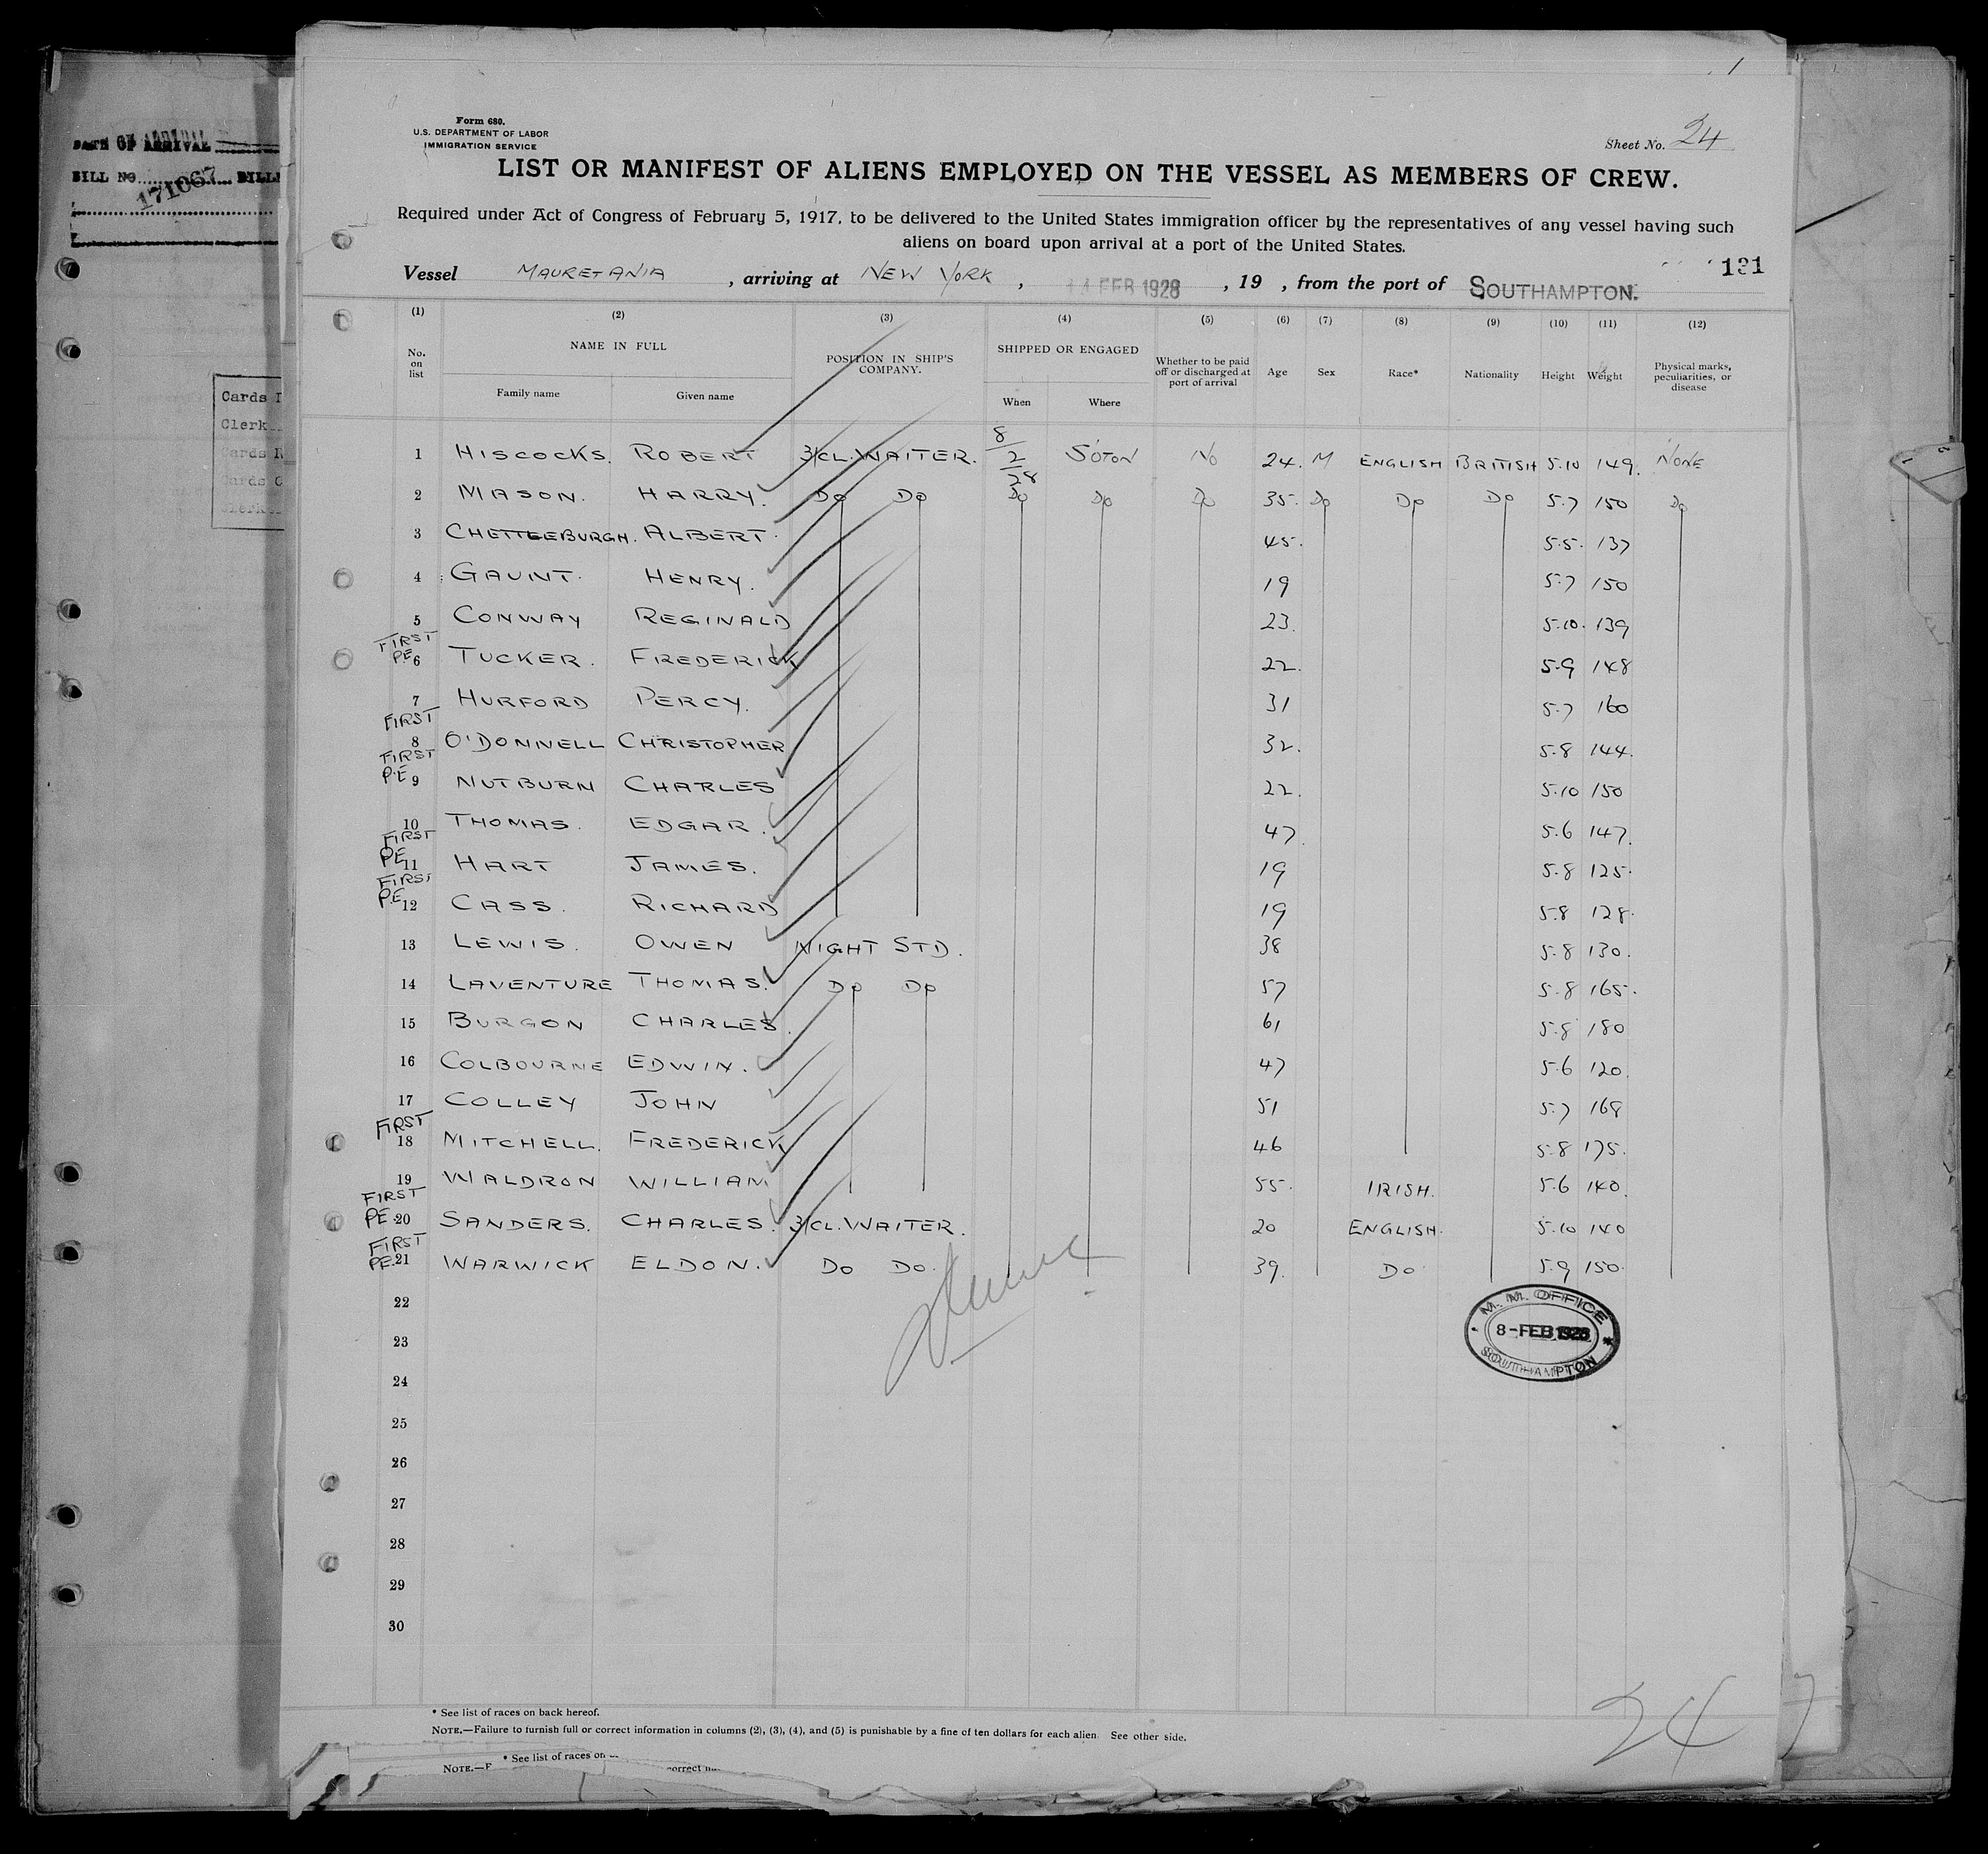 1
DATE OF ARRIVAL
BILL NO. 171067
Cards
Clerk
Cards
Cards
Clerk
Form 680.
U.S. DEPARTMENT OF LABOR
IMMIGRATION SERVICE
Sheet No. 24
LIST OR MANIFEST OF ALIENS EMPLOYED ON THE VESSEL AS MEMBERS OF CREW.
Required under Act of Congress of February 5, 1917, to be delivered to the United States immigration officer by the representatives of any vessel having such
aliens on board upon arrival at a port of the United States.
131
Vessel MAURETANIA , arriving at NEW YORK , 14 FEB 1928 , 19 , from the port of SOUTHAMPTON.
(1) (2) (3) (4) (5) (6) (7) (8) (9) (10) (11) (12)
No. on list NAME IN FULL POSITION IN SHIP'S COMPANY. SHIPPED OR ENGAGED Whether to be paid off or discharged at port of arrival Age Sex Race* Nationality Height Weight Physical marks, peculiarities, or disease
Family name Given name When Where
1 HISCOCKS. ROBERT 3/CL. WAITER. 8/2/28 S'OTON NO 24. M ENGLISH BRITISH 5.10 149. NONE
2 MASON. HARRY. DO DO DO DO DO 35. DO DO DO 5.7 150 DO
3 CHETTLEBURGH. ALBERT. 45. 5.5. 137
4 GAUNT. HENRY. 19 5.7 150
5 CONWAY REGINALD 23. 5.10. 139
FIRST
PE 6 TUCKER. FREDERICK 22. 5.9 148
7 HURFORD PERCY. 31 5.7 160
FIRST
8 O'DONNELL CHRISTOPHER 32. 5.8 144.
FIRST
P.E 9 NUTBURN CHARLES 22. 5.10 150
10 THOMAS. EDGAR. 47. 5.6 147.
FIRST
PE 11 HART JAMES. 19 5.8 125.
FIRST
P.E 12 CASS. RICHARD 19 5.8 128.
13 LEWIS. OWEN NIGHT STD. 38 5.8 130.
14 LAVENTURE THOMAS. DO DO 57 5.8 165.
15 BURGON CHARLES. 61 5.8 180
16 COLBOURNE EDWIN. 47 5.6 120.
17 COLLEY JOHN 51 5.7 168
FIRST
18 MITCHELL. FREDERICK 46 5.8 175.
19 WALDRON WILLIAM 55. IRISH. 5.6 140.
FIRST
PE. 20 SANDERS. CHARLES. 3/CL. WAITER. 20 ENGLISH. 5.10 140
FIRST
PE. 21 WARWICK ELDON. DO DO. 39. DO 5.9 150.
22
M. M. OFFICE
8 - FEB 1928
SOUTHAMPTON
23
24
25
26
27
28
29
30
* See list of races on back hereof.
NOTE.—Failure to furnish full or correct information in columns (2), (3), (4), and (5) is punishable by a fine of ten dollars for each alien. See other side.
24
* See list of races on
NOTE.—F correct